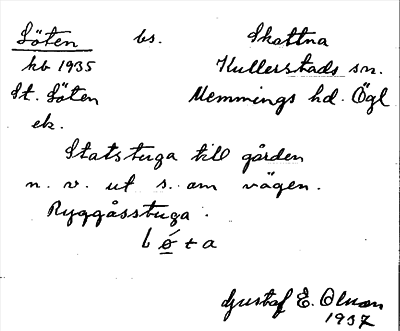 Löten bs. Skattna
kb 1935 Kullerstads sn.
St. Löten Memmings hd. Ögl
ek.
Statstuga till gården
n. v. ut s. om vägen.
Ryggåsstuga.
Gustaf E. Olson
1937